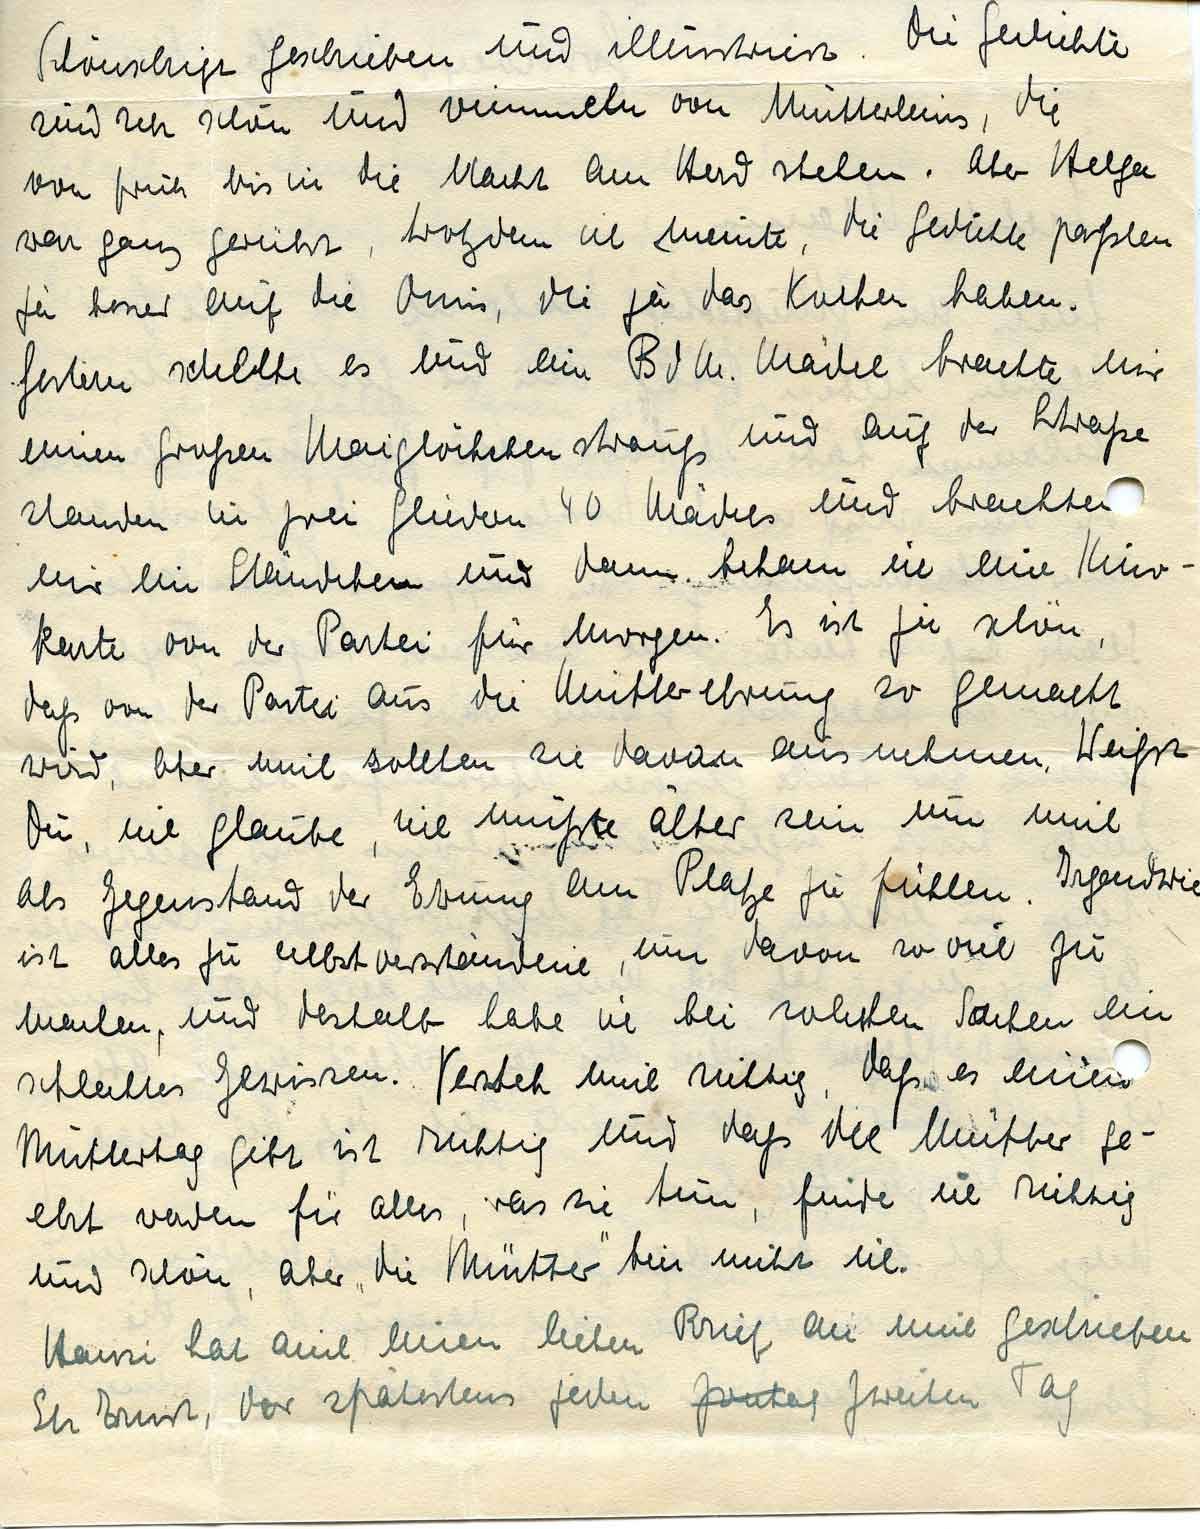 schönschrift geschrieben und illustriert. Die Gedichte
sind sehr schön und wimmeln von Mütterleins, die
von früh bis in die Nacht am Herd stehen. Aber Helga
war ganz gerührt, trotzdem ich meinte, die Gedichte paßten
ja besser auf die Omis, die ja das Kochen haben.
Gestern schellte es und ein BdM. Mädel brachte mir
einen großen Maiglöckchenstrauß und auf der Straße
standen in zwei Gliedern 40 Mädels und brachten
mir ein Ständchen und dann bekam ich eine Kino-
karte von der Partei für Morgen. Es ist ja schön,
daß von der Partei aus die Mütterehrung so gemacht
wird, aber mich sollten sie davon ausnehmen. Weißt
Du, ich glaube, ich müßte älter sein um mich
als Gegenstand der Ehrung am Platze zu fühlen. Irgendwie
ist alles zu selbstverständlich, um davon so viel zu
machen, und deshalb habe ich bei solchen Sachen ein
schlechtes Gewissen. Versteh mich richtig, daß es einen
Muttertag gibt ist richtig und daß die Mütter ge-
ehrt werden für alles, was sie tun, finde ich richtig
und schön, aber „die Mütter" bin nicht ich.
Hansi hat auch einen lieben Brief an mich geschrieben
Der spätestens jeden zweiten Tag